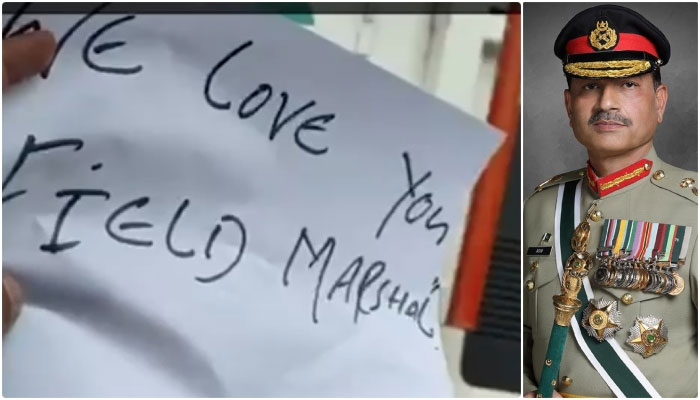 WE LOVE
You
FIELD MARSHAL